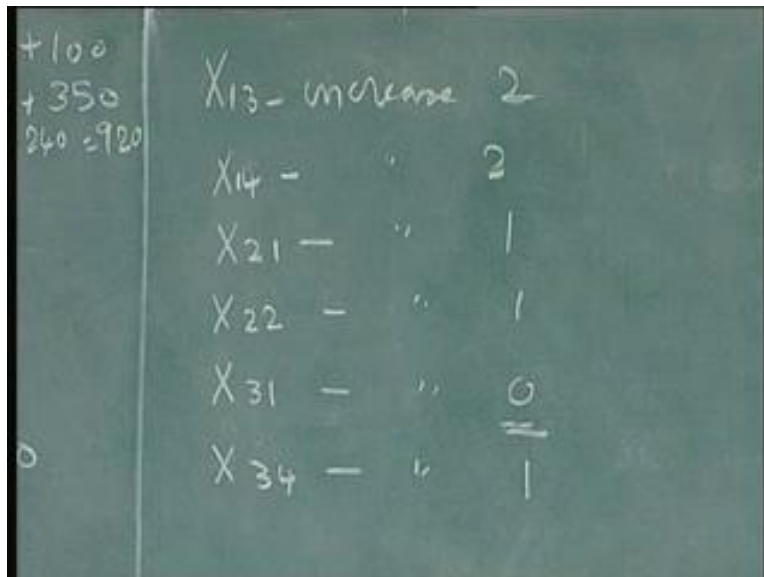 +100
+350
240 = 920
X13 - increase 2
X14 - " 2
X21 - " 1
X22 - " 1
X31 - " 0
X34 - " 1
0